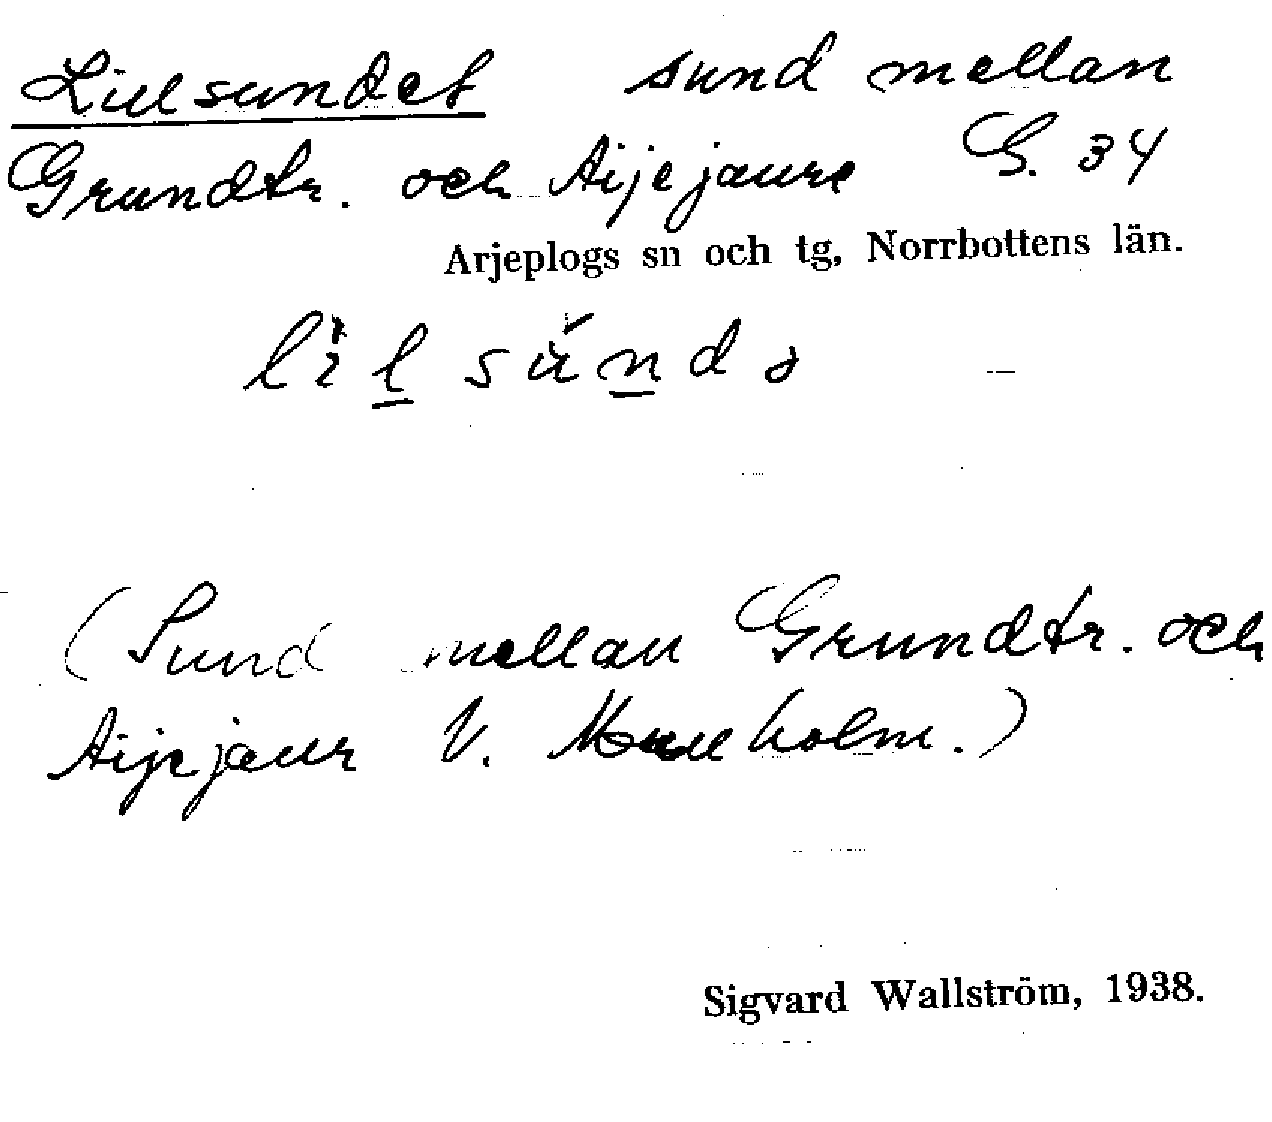 Lillsundet sund mellan
Grundtr. och Aijejaure G. 34
Arjeplogs sn och tg, Norrbottens län.
(Sund mellan Grundtr. och
Aijejaur V. holm.)
Sigvard Wallström, 1938.